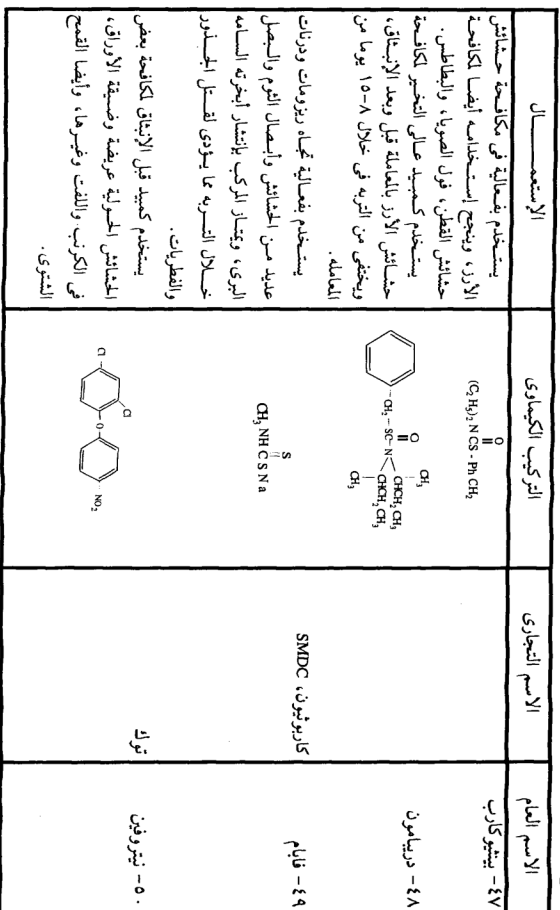 الاسم العام
الاسم التجارى
التركيب الكيماوى
الإستعمــــال
٤٧- بينثيوكارب
O
(C2 H5)2 N CS - Ph CH2
يستخدم بفعالية فى مكافحة حشائش
الأرز، وينجح إستخدامه أيضا لمكافحة
حشائش القطن، فول الصويا، والبطاطس.
٤٨- دريبامون
O
CH2 - SC - N
CH3
CHCH2 CH3
CHCH2 CH3
CH3
يستخدم كمبيد عالى التخير لمكافحة
حشائش الأرز بالمعاملة قبل وبعد الإنبثاق،
ويختفى من التربه فى خلال ٨-١٥ يوما من
المعامله.
٤٩- فابام
كاربوثيون، SMDC
S
CH3 NH C S N a
يستخدم بفعالية تجاه ريزومات ودرنات
عديد من الحشائش وأبصال الثوم والبصل
البرى، ويمتاز المركب بإنتشار أبخرته السامه
خلال التربه مما يؤدى لقتل الجذور
والفطريات.
٥٠- نيتروفين
توك
Cl
Cl
O
NO2
يستخدم كمبيد قبل الإنبثاق لمكافحة بعض
الحشائش الحولية عريضة وضيقة الأوراق،
فى الكرنب واللفت وغيرها، وأيضا القمح
الشتوى.